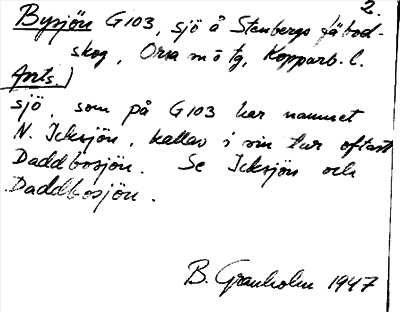 2.
Bysjön G103, sjö å Stenbergs fäbod-
skog, Orsa m o tg, Kopparb. l.
forts.)
sjö, som på G103 har namnet
N. Icksjön, kallas i sin tur oftast
Daddbosjön. Se Icksjön och
Daddbosjön.
B. Granholm 1947